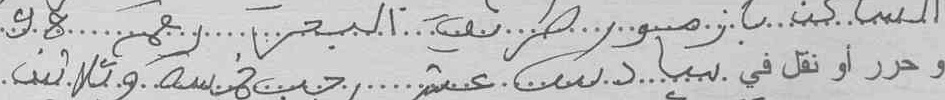 الساكن بأزمور طريق البحر رقم
و حرر أو نقل في سادس عشر رجب خمسة وثلاثين